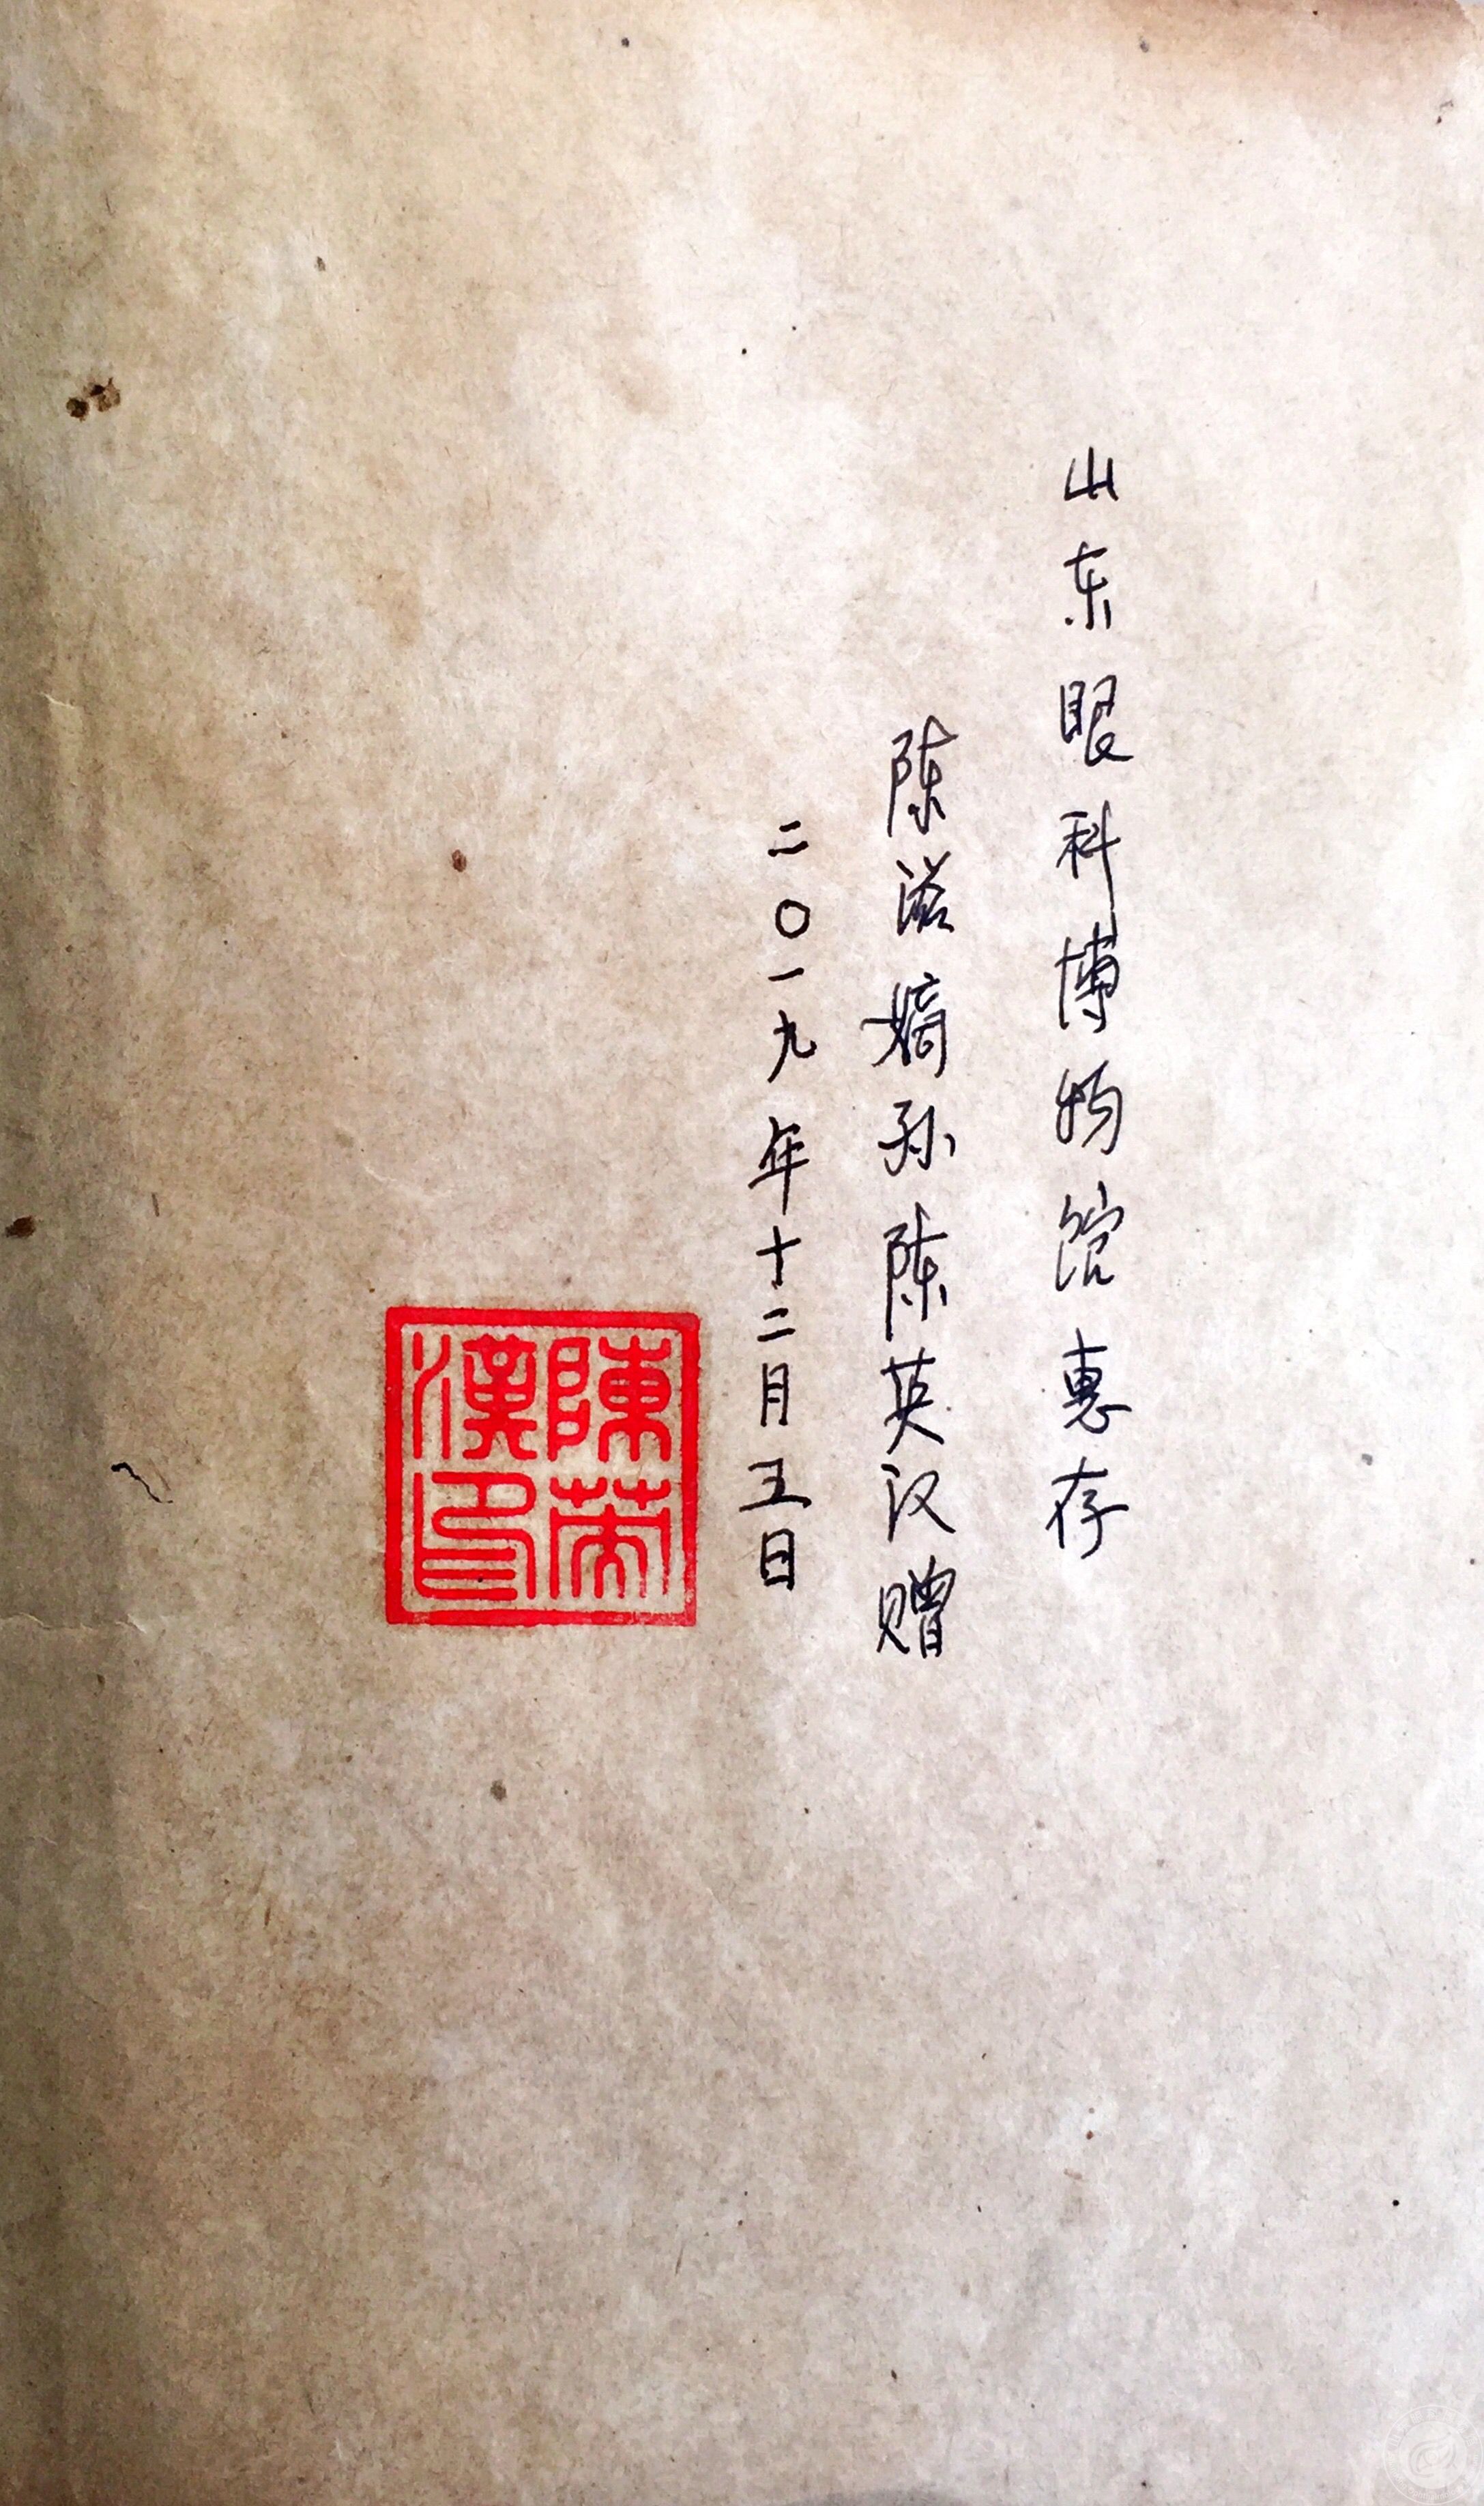 山东眼科博物馆惠存
陈滋嫡孙陈英汉赠
二〇一九年十二月五日
陳英漢印